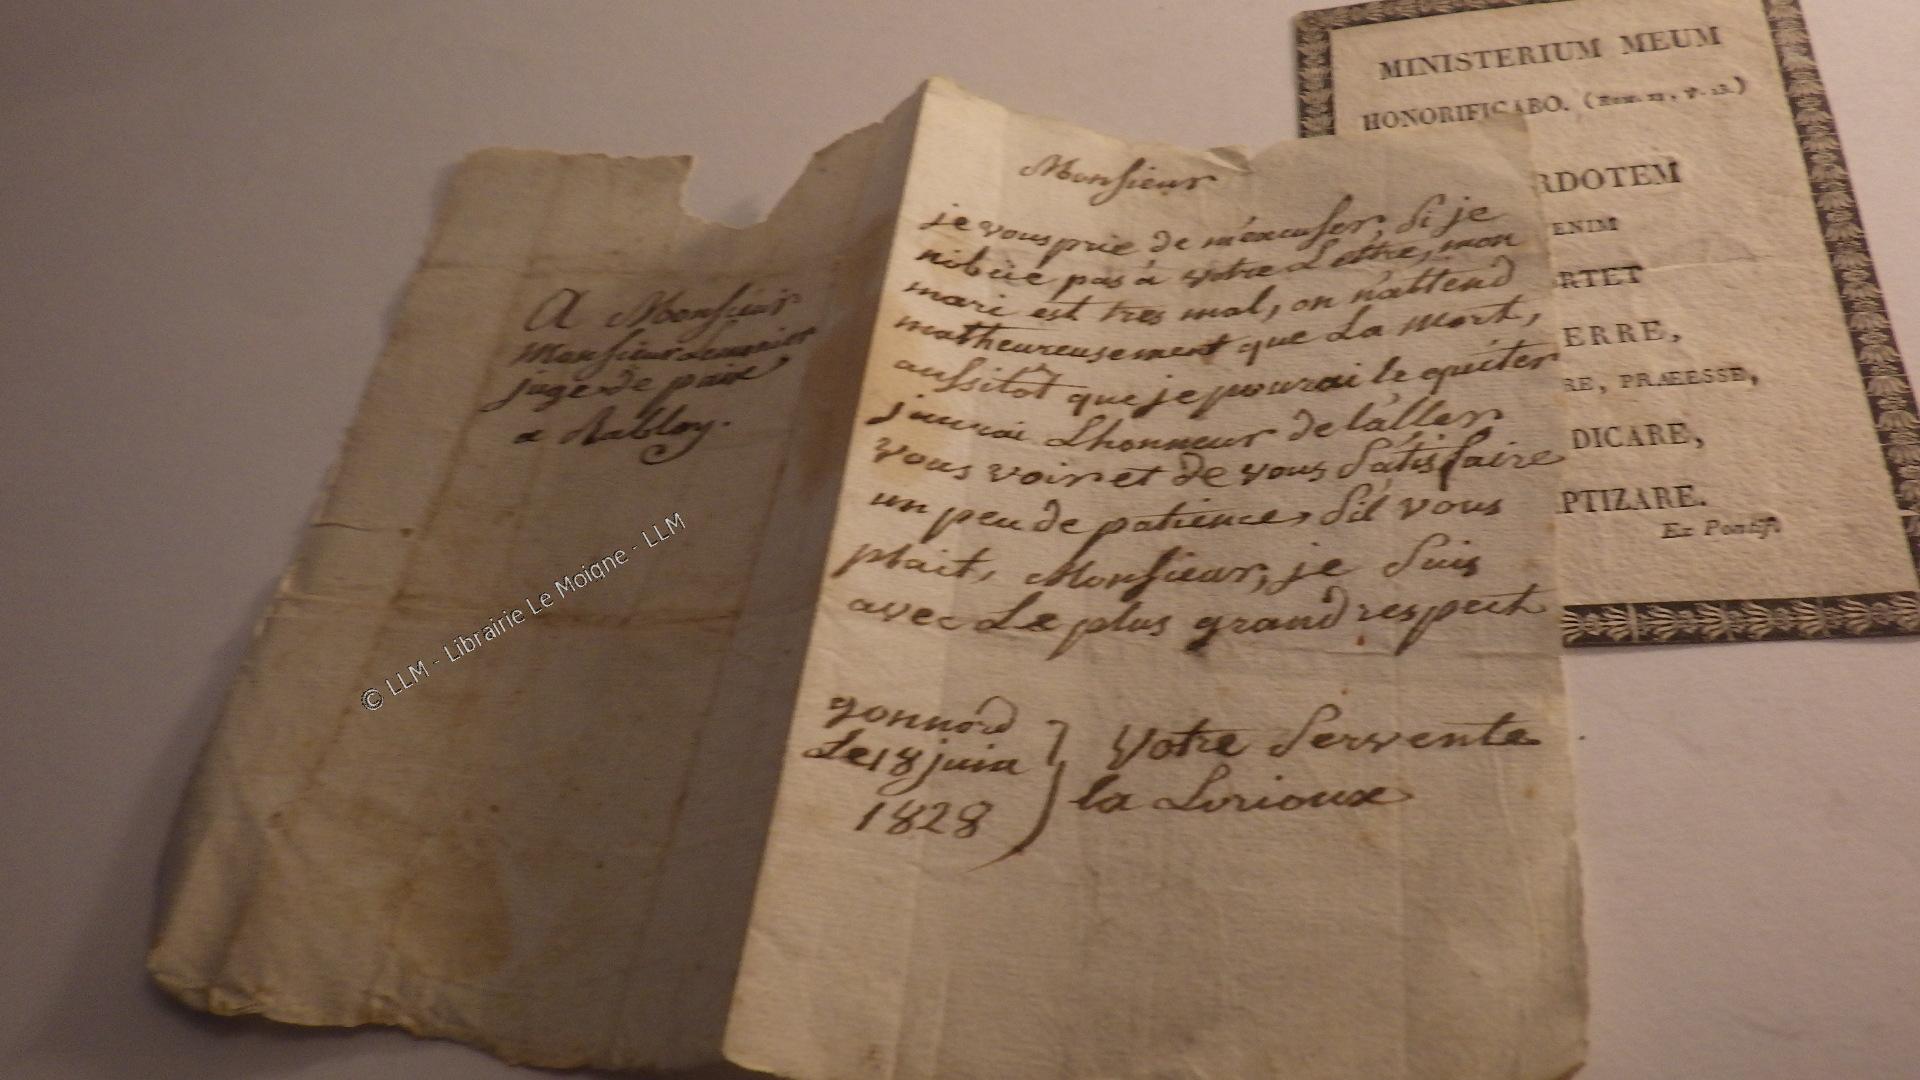 A Monsieur
Monsieur
juge de paix
a Rablay.
Monsieur
je vous prie de m'excuser, Si je
pas a votre Lettre, mon
mari est tres mal, on n'attend
malheureusement que La Mort,
aussitot que je pourai le quiter
j'aurai L'honneur de l'aller
vous voir et de vous Satisfaire
un peu de patience, S'il vous
plait, Monsieur, je Suis
avec Le plus grand respect
gonnord
Le 18 juin
1828
Votre Servente
la Lorioux
MINISTERIUM MEUM
HONORIFICABO. (Rom. 11, v. 13.)
RDOTEM
ENIM
ORTET
ERRE,
RE, PRÆESSE,
DICARE,
APTIZARE.
Ex Pontif.
© LLM - Librairie Le Moigne - LLM